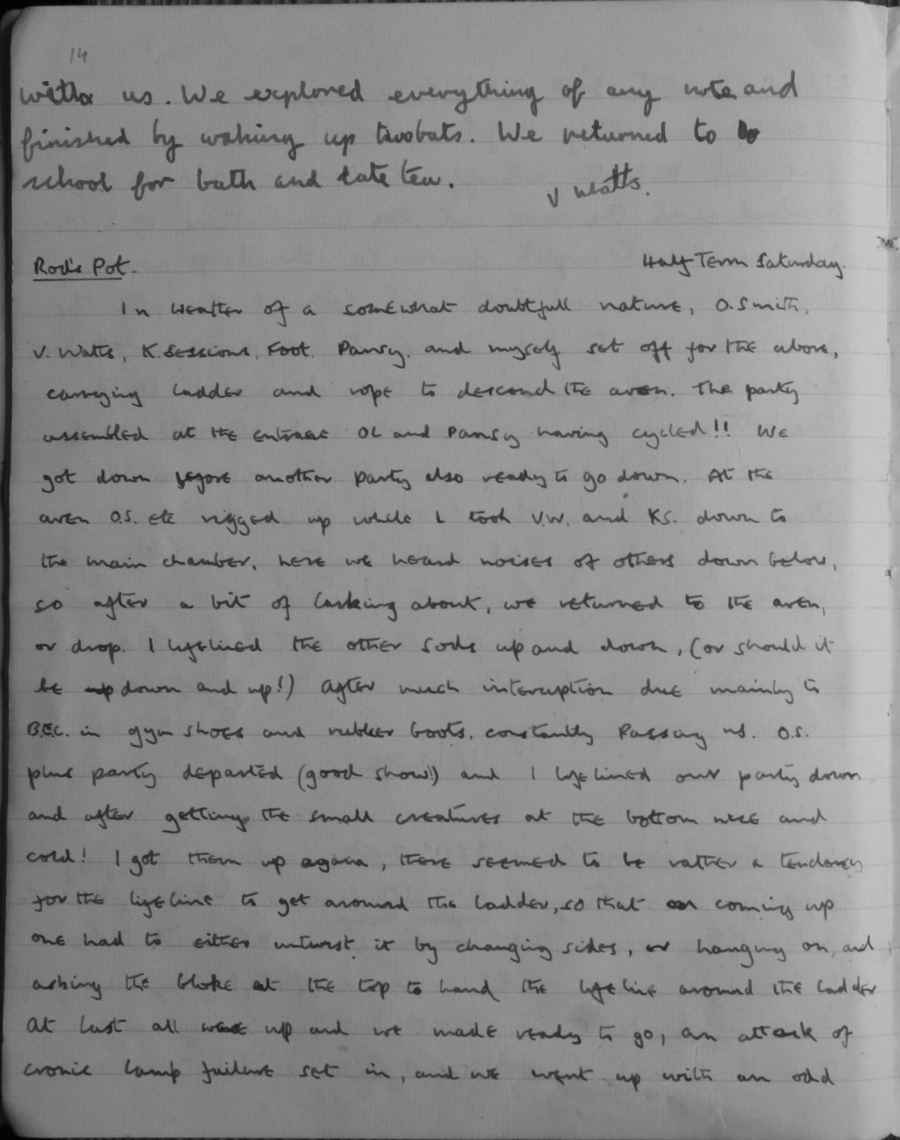 14
with us. We explored everything of any note and
finished by waking up two bats. We returned to
school for bath and late tea.
V Watts.
Rod's Pot. Half Term Saturday.
In weather of a somewhat doubtfull nature, O. Smith,
V. Watts, K. Sessions, Foot, Pansy, and myself set off for the above,
carrying ladder and rope to descend the aven. The party
assembled at the entrance OL and Pansy having cycled!! We
got down before another party also ready to go down. At the
aven O.S. etc rigged up while I took V.W. and K.S. down to
the main chamber, here we heard noises of others down below,
so after a bit of larking about, we returned to the aven,
or drop. I lifelined the other sods up and down, (or should it
be down and up!) After much interuption due mainly to
B.E.C. in gym shoes and rubber boots, constantly passing us. O.S.
plus party departed (good show!) and I lifelined our party down
and after getting the small creatures at the bottom nice and
cold! I got them up again, there seemed to be rather a tendency
for the lifeline to get around the ladder, so that on coming up
one had to either untwist it by changing sides, or hanging on, and
asking the bloke at the top to hand the lifeline around the ladder
At last all were up and we made ready to go, an attack of
cronic lamp failure set in, and we went up with an odd